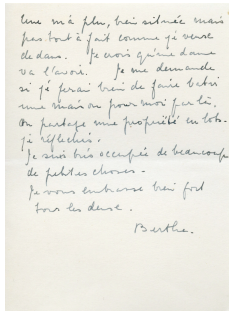 lune m'a plu, bien située mais
pas tout à fait comme je verse
dedans. Je crois qu'une dame
va l'avoir. Je me demande
si je ferai bien de faire batir
une maison pour moi par là.
On partage une propriété en lots.
je réfléchis.
Je suis très occupée de beaucoup
de petites choses.
Je vous embrasse bien fort
tous les deux.
Berthe.